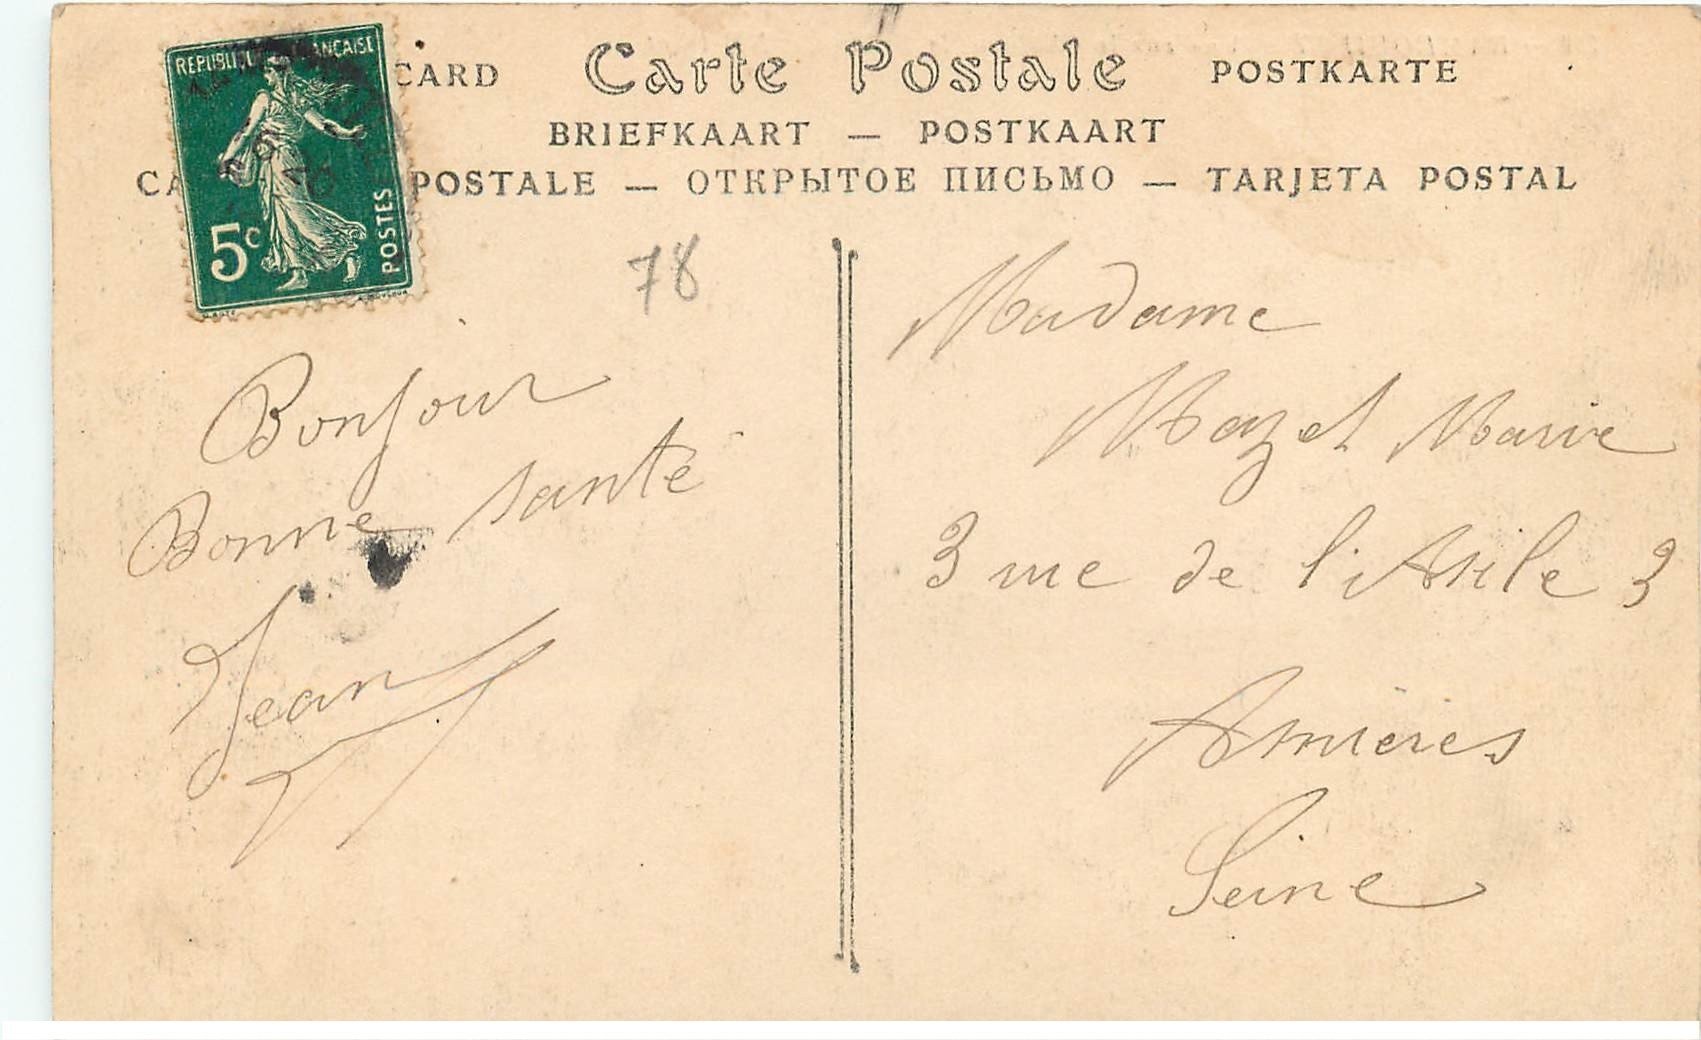 CARD Carte Postale POSTKARTE
BRIEFKAART — POSTKAART
CA POSTALE — ОТКРЫТОЕ ПИСЬМО — TARJETA POSTAL
REPUBLIQUE FRANÇAISE
5c
POSTES
78
Bonjour
Bonne santé
Jean
Madame
Mazet Marie
3 rue de l'Asile 3
Asnières
Seine